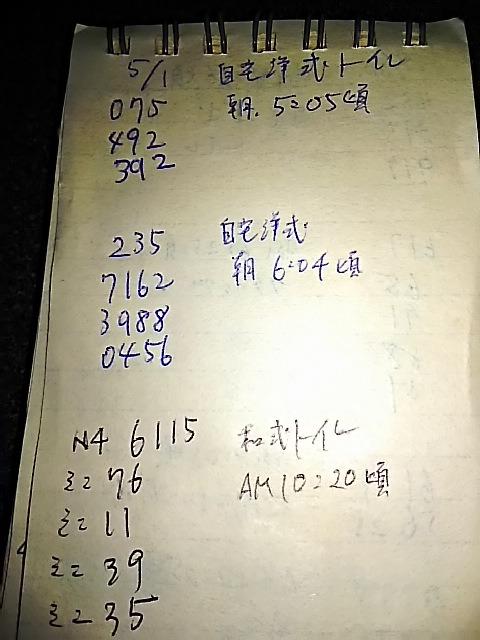 5/1 自宅洋式トイレ
075 朝、5:05頃
492
392
235 自宅洋式
7162 朝 6:04頃
3988
0456
N4 6115 和式トイレ
ミニ 76 AM10:20頃
ミニ 11
ミニ 39
ミニ 35